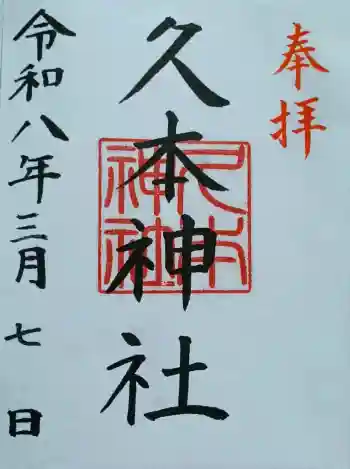 奉拝
久本神社
久本神社
令和八年三月七日